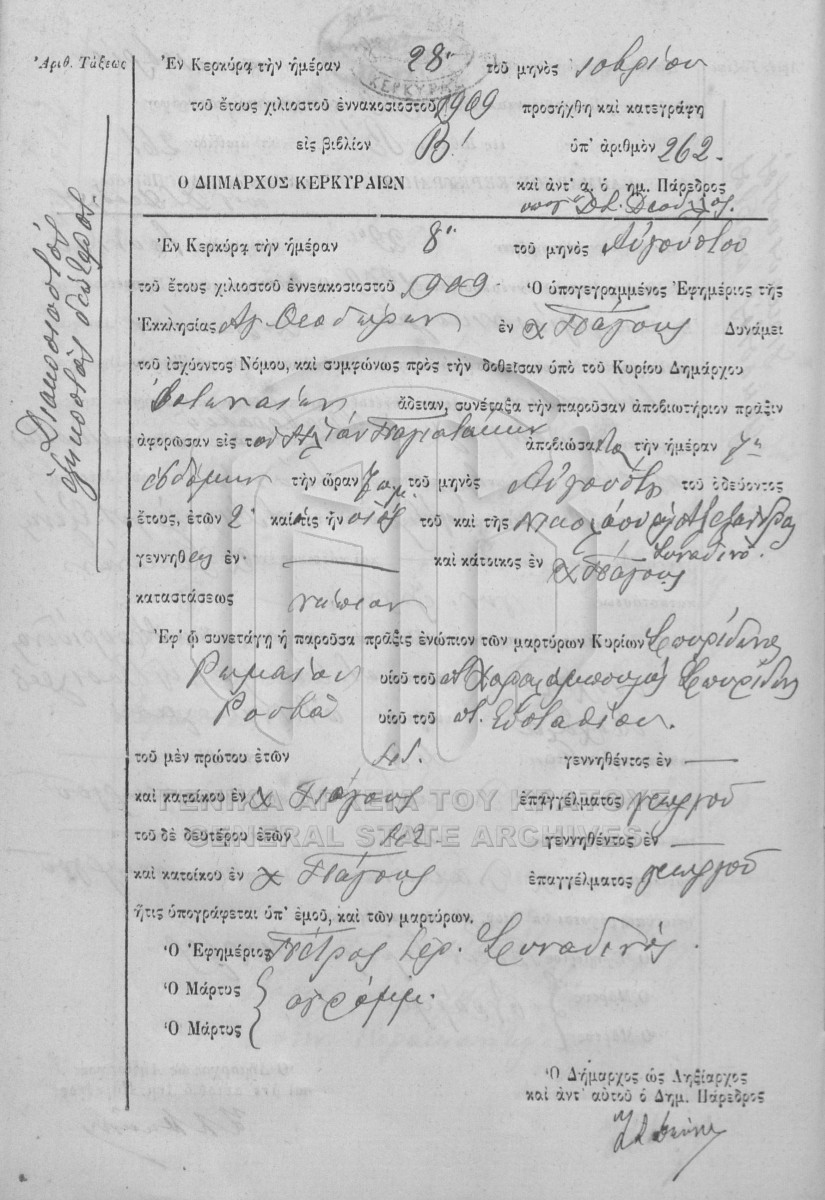 Ἀριθ. Τάξεως
Ἐν Κερκύρᾳ τὴν ἡμέραν 28 τοῦ μηνὸς
τοῦ ἔτους χιλιοστοῦ ἐννακοσιοστοῦ 1909 προσήχθη καὶ κατεγράφη
εἰς βιβλίον Β! ὑπ' ἀριθμὸν 262.
Ο ΔΗΜΑΡΧΟΣ ΚΕΡΚΥΡΑΙΩΝ καὶ ἀντ' α. ὁ δημ. Πάρεδρος
Ἐν Κερκύρᾳ τὴν ἡμέραν 8 τοῦ μηνὸς Αὐγούστου
τοῦ ἔτους χιλιοστοῦ ἐννεακοσιοστοῦ 1909 Ὁ ὑπογεγραμμένος Ἐφημέριος τῆς
Ἐκκλησίας Ἁγ Θεοδώρων ἐν χ Πάγους Δυνάμει
τοῦ ἰσχύοντος Νόμου, καὶ συμφώνως πρὸς τὴν δοθεῖσαν ὑπὸ τοῦ Κυρίου Δημάρχου
ἄδειαν, συνέταξα τὴν παροῦσαν ἀποβιωτήριον πρᾶξιν
ἀφορῶσαν εἰς τὸν ἀποβιώσαντα τὴν ἡμέραν 7η
ἑβδόμην τὴν ὥραν 7 π.μ. τοῦ μηνὸς Αὐγούστου τοῦ ὁδεύοντος
ἔτους, ἐτῶν 2 καὶ τις ἦν υἱὸς τοῦ καὶ τῆς
Συναδινο
γεννηθεὶς ἐν — καὶ κάτοικος ἐν χ Πάγους
καταστάσεως νήπιον
Ἐφ' ᾧ συνετάγη ἡ παροῦσα πρᾶξις ἐνώπιον τῶν μαρτύρων Κυρίων Σπυρίδωνος
Ρωμαίου υἱοῦ τοῦ Χαραλάμπους Σπυρίδωνος
Ρουβᾶ υἱοῦ τοῦ Εὐσταθίου.
τοῦ μὲν πρώτου ἐτῶν γεννηθέντος ἐν —
καὶ κατοίκου ἐν χ Πάγους ἐπαγγέλματος γεωργοῦ
ΓΕΝΙΚΑ ΑΡΧΕΙΑ ΤΟΥ ΚΡΑΤΟΥΣ
τοῦ δὲ δευτέρου ἐτῶν 42 γεννηθέντος ἐν —
GENERAL STATE ARCHIVES
καὶ κατοίκου ἐν χ Πάγους ἐπαγγέλματος γεωργοῦ
ἥτις ὑπογράφεται ὑπ' ἐμοῦ, καὶ τῶν μαρτύρων.
Ὁ Ἐφημέριος Πέτρος Ἱερ. Συναδινός.
Ὁ Μάρτυς ἀγράμμ.
Ὁ Μάρτυς
Ὁ Δήμαρχος ὡς Ληξίαρχος
καὶ ἀντ' αὐτοῦ ὁ Δημ. Πάρεδρος
Διακοσιοστός
ἑξηκοστὸς δεύτερος.